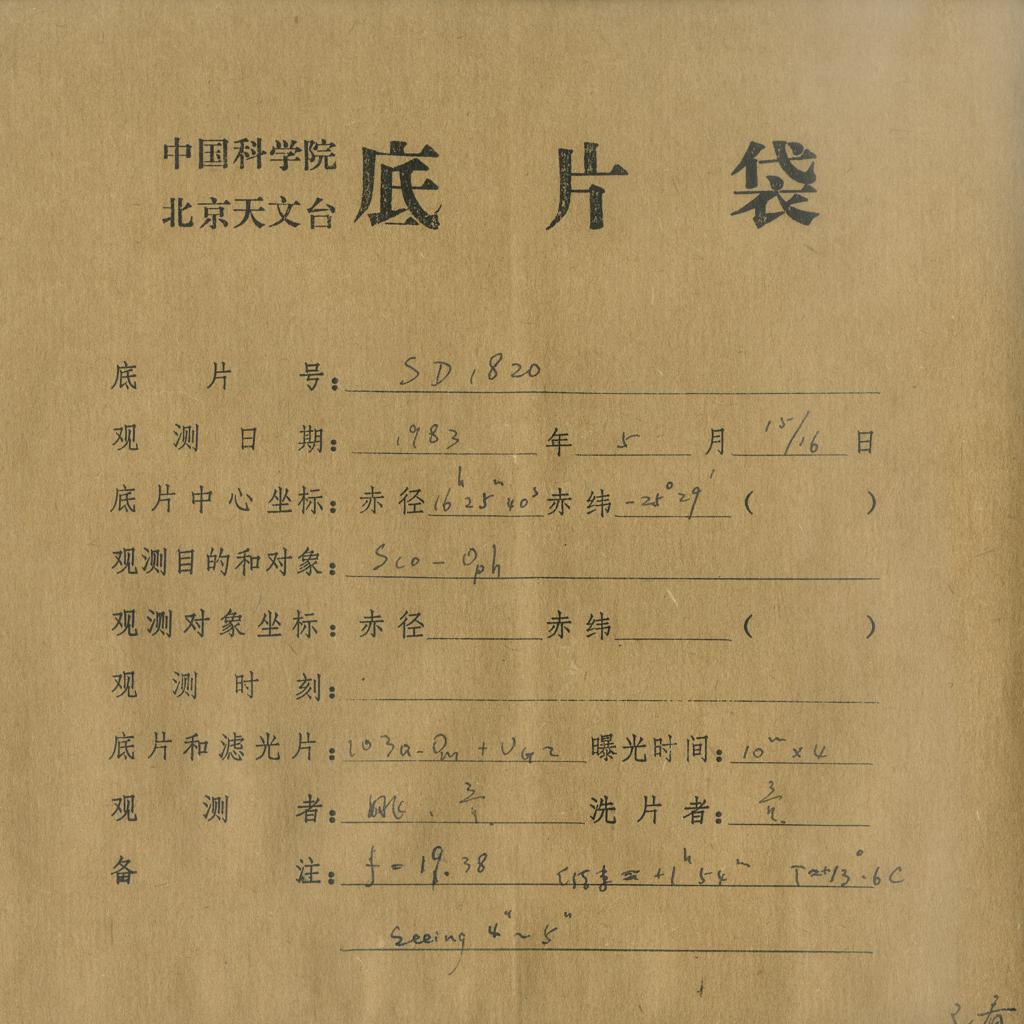 中国科学院
北京天文台
底片袋
底片号: SD1820
观测日期: 1983年5月15/16日
底片中心坐标: 赤径16h25m40s赤纬-25°29′( )
观测目的和对象: Sco-Oph
观测对象坐标: 赤径 赤纬 ( )
观测时刻:
底片和滤光片: 103a-O + UG2 曝光时间: 10m×4
观测者: 洗片者:
备注: f=19.38 +1h54m T=+13°.6C
Seeing 4″~5″